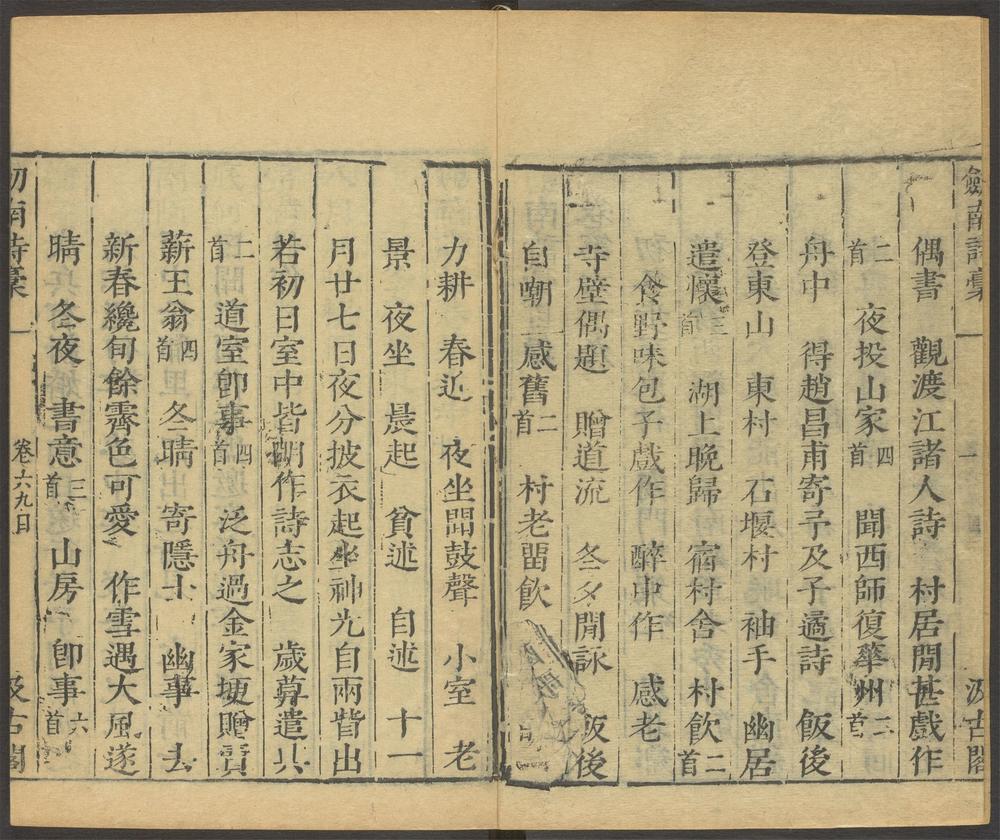 劍南詩稾 一 汲古閣
偶書 觀渡江諸人詩 村居閒甚戲作
二首 夜投山家四首 聞西師復華州二首
舟中 得趙昌甫寄予及子遹詩 飯後
登東山 東村 石堰村 袖手 幽居
遣懷三首 湖上晚歸 宿村舍 村飲二首
食野味包子戲作 醉中作 感老
寺壁偶題 贈道流 冬夕閒詠 飯後
自嘲 感舊二首 村老留飲
力耕 春近 夜坐聞鼓聲 小室 老
景 夜坐 晨起 貧述 自述 十一
月廿七日夜分披衣起坐神光自兩眥出
若初日室中皆明作詩志之 歲莫遣興
二首 道室即事四首 泛舟過金家埂贈賣
薪王翁四首 冬晴 寄隱士 幽事 去
新春纔旬餘霽色可愛 作雪遇大風遂
晴 冬夜 書意三首 山房 即事六首
劍南詩稾 一 卷六九目 汲古閣